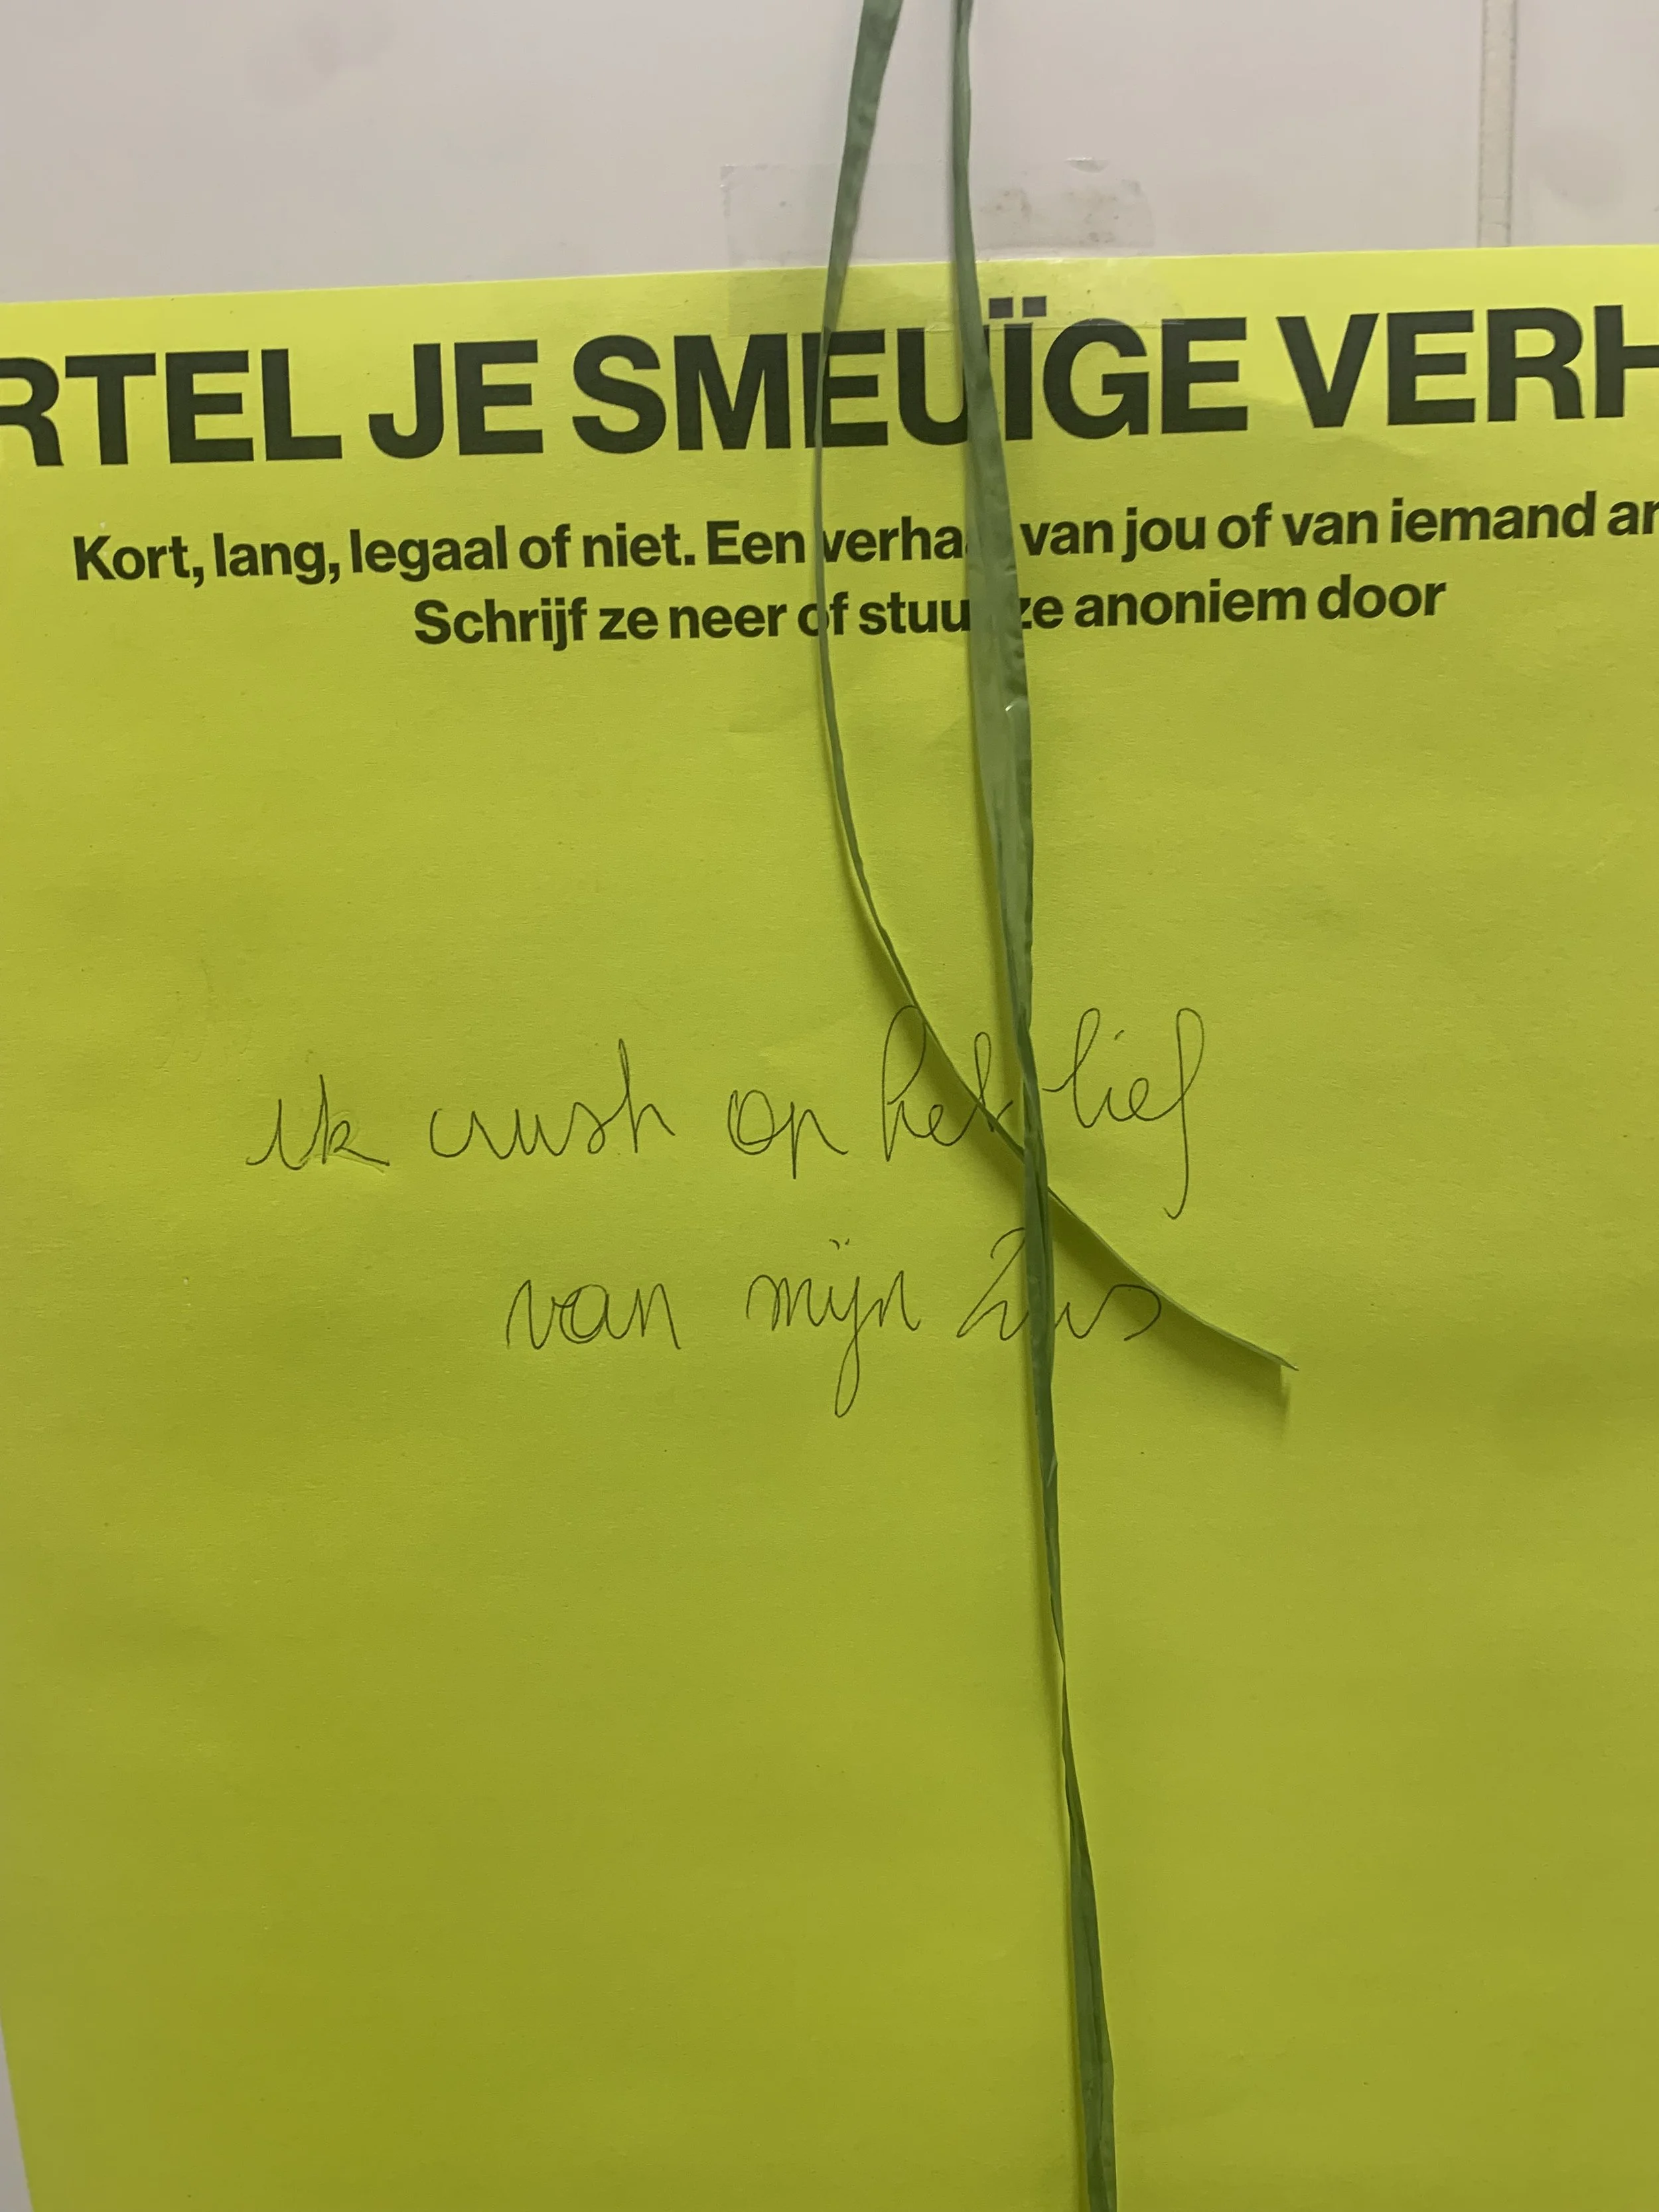 RTEL JE SMEUÏGE VERH
Kort, lang, legaal of niet. Een verhaal van jou of van iemand an
Schrijf ze neer of stuur ze anoniem door
ik crush op het lief
van mijn zus